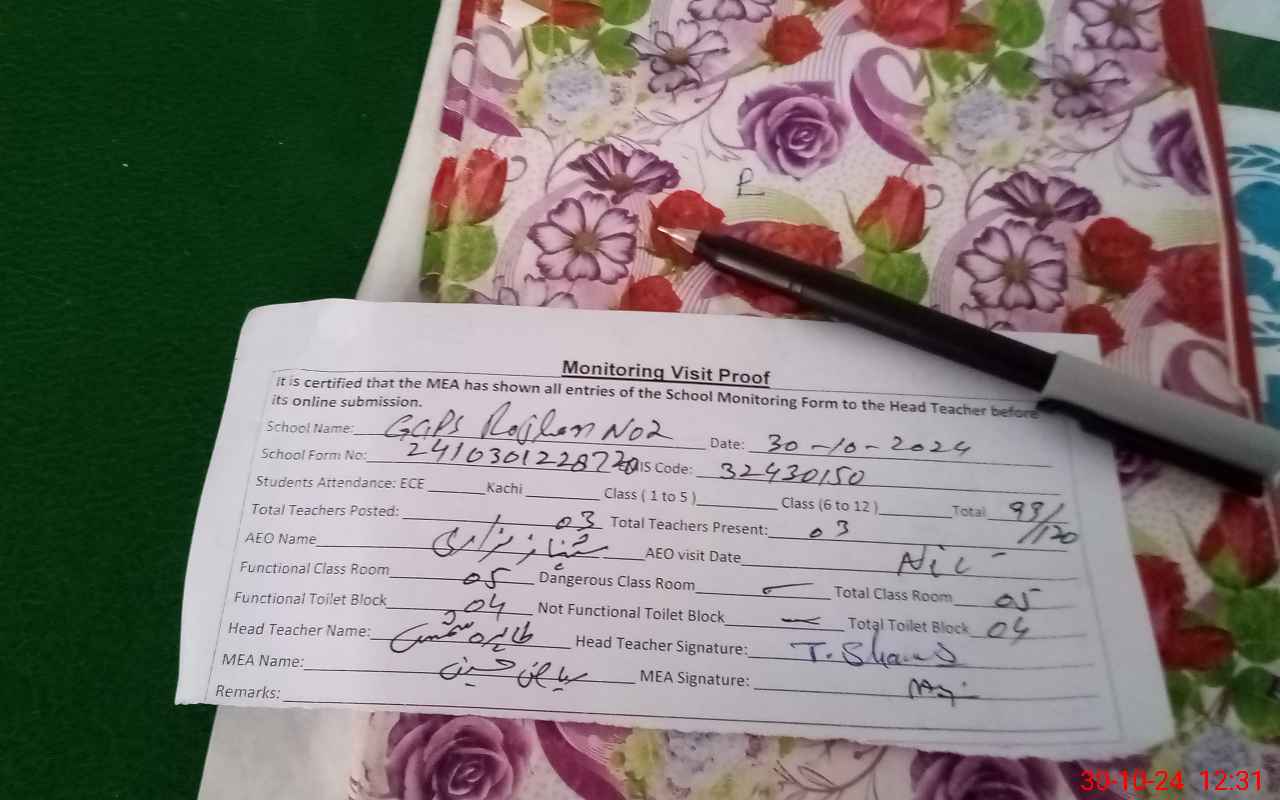 Monitoring Visit Proof
It is certified that the MEA has shown all entries of the School Monitoring Form to the Head Teacher before
its online submission.
School Name: GGPS Rojhan No2 Date: 30-10-2024
School Form No: IS Code: 32430150
Students Attendance: ECE Kachi Class ( 1 to 5 ) Class (6 to 12 ) Total 99/120
Total Teachers Posted: 03 Total Teachers Present: 03
AEO Name شہناز مزاری AEO visit Date Nil -
Functional Class Room 05 Dangerous Class Room - Total Class Room 05
Functional Toilet Block 04 Not Functional Toilet Block - Total Toilet Block 04
Head Teacher Name: طاہرہ شمس Head Teacher Signature: T. Shams
MEA Name: حسین MEA Signature:
Remarks:
30-10-24 12:31